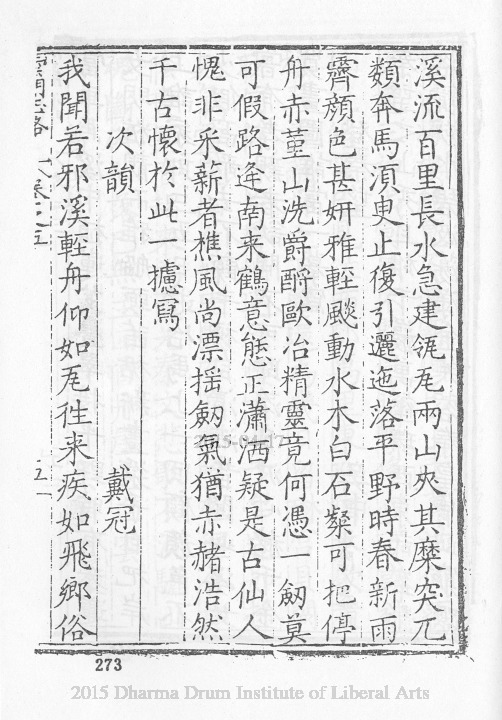 溪流百里長水急建瓴瓦兩山夾其麋突兀
纇奔馬湏臾止復引邐迤落平野時春新雨
霽顔色甚妍雅輊颷動水木白石粲可把停
舟赤堇山洗爵酹歐冶精靈竟何憑一劔莫
可假路逢南来鶴意態正瀟洒疑是古仙人
愧非采薪者樵風尚漂揺劔氣猶赤赭浩然
千古懷扵此一攄冩
次韻 戴冠
我聞若邪溪輊舟仰如瓦徃来疾如飛鄉俗
卷之五
五一
2015-04-17
273
2015 Dharma Drum Institute of Liberal Arts